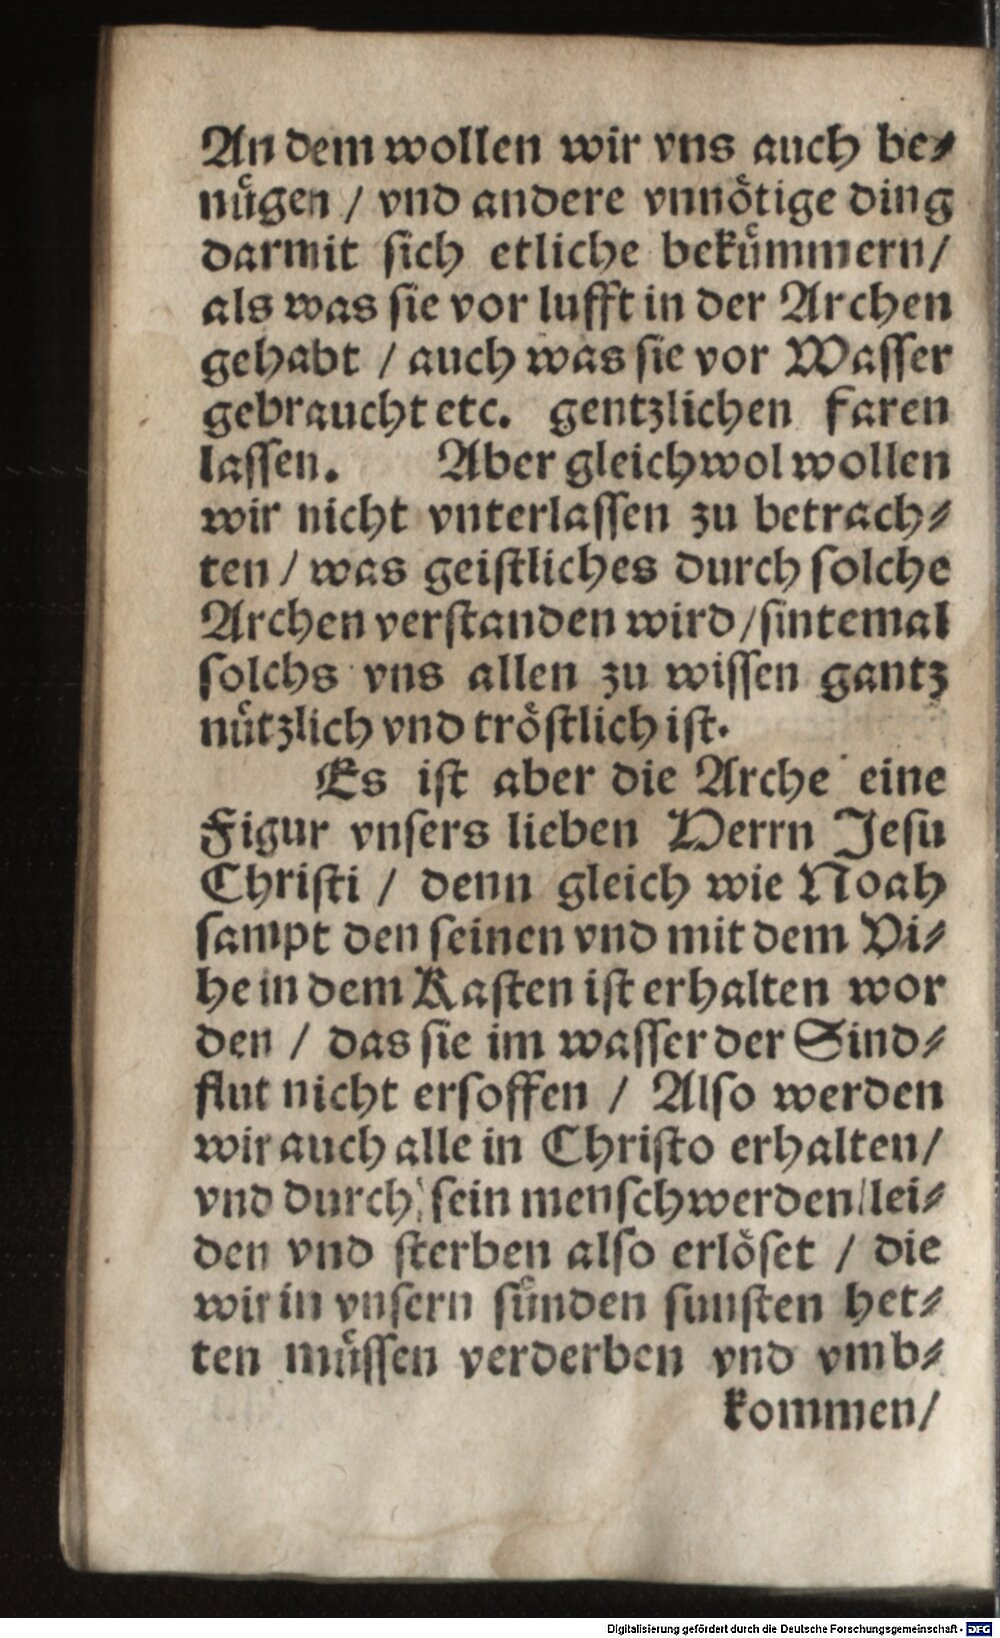 An dem wollen wir vns auch be⸗
nuͤgen / vnd andere vnnoͤtige ding
darmit sich etliche bekuͤmmern/
als was sie vor lufft in der Archen
gehabt / auch was sie vor Wasser
gebraucht etc. gentzlichen faren
lassen. Aber gleichwol wollen
wir nicht vnterlassen zu betrach⸗
ten / was geistliches durch solche
Archen verstanden wird / sintemal
solchs vns allen zu wissen gantz
nuͤtzlich vnd troͤstlich ist.
Es ist aber die Arche eine
Figur vnsers lieben Herrn Jesu
Christi / denn gleich wie Noah
sampt den seinen vnd mit dem Vi⸗
he in dem Kasten ist erhalten wor
den / das sie im wasser der Sind⸗
flut nicht ersoffen / Also werden
wir auch alle in Christo erhalten/
vnd durch sein menschwerden / lei⸗
den vnd sterben also erloͤset / die
wir in vnsern suͤnden sunsten het⸗
ten muͤssen verderben vnd vmb⸗
kommen/
Digitalisierung gefördert durch die Deutsche Forschungsgemeinschaft - DFG